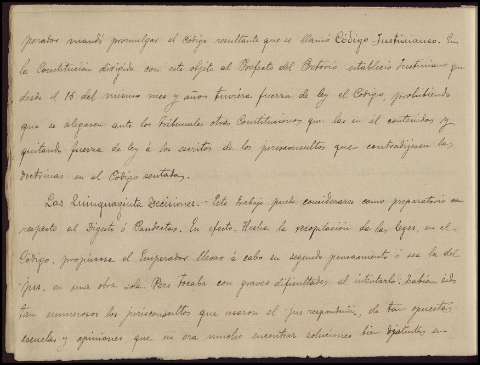 perador mandó promulgar el código resultante que se llamó Código Justinianeo. En
la Constitución dirigida con este objeto al Prefecto del Pretorio estableció Justiniano que
desde el 16 del mismo mes y años tuviera fuerza de ley el Código, prohibiendo
que se alegaran ante los tribunales otras Constituciones que las en el contenidas y
quitando fuerza de ley á los escritos de los jurisconsultos que contradijesen las
doctrinas en el Código sentadas.
Las Quinquaginta Decisiones.- Este trabajo puede considerarse como preparatorio con
respecto al Digesto ó Pandectas. En efecto. Hecha la recopilación de las leges, en el
Código, propúsose el Emperador llevar á cabo su segundo pensamiento ó sea la del
jus, en una obra sola. Pero tocaba con graves dificultades al intentarlo; habían sido
tan numerosos los jurisconsultos que usaron el jus respondendi, de tan opuestas
escuelas y opiniones que no era mucho encontrar soluciones bien distintas en